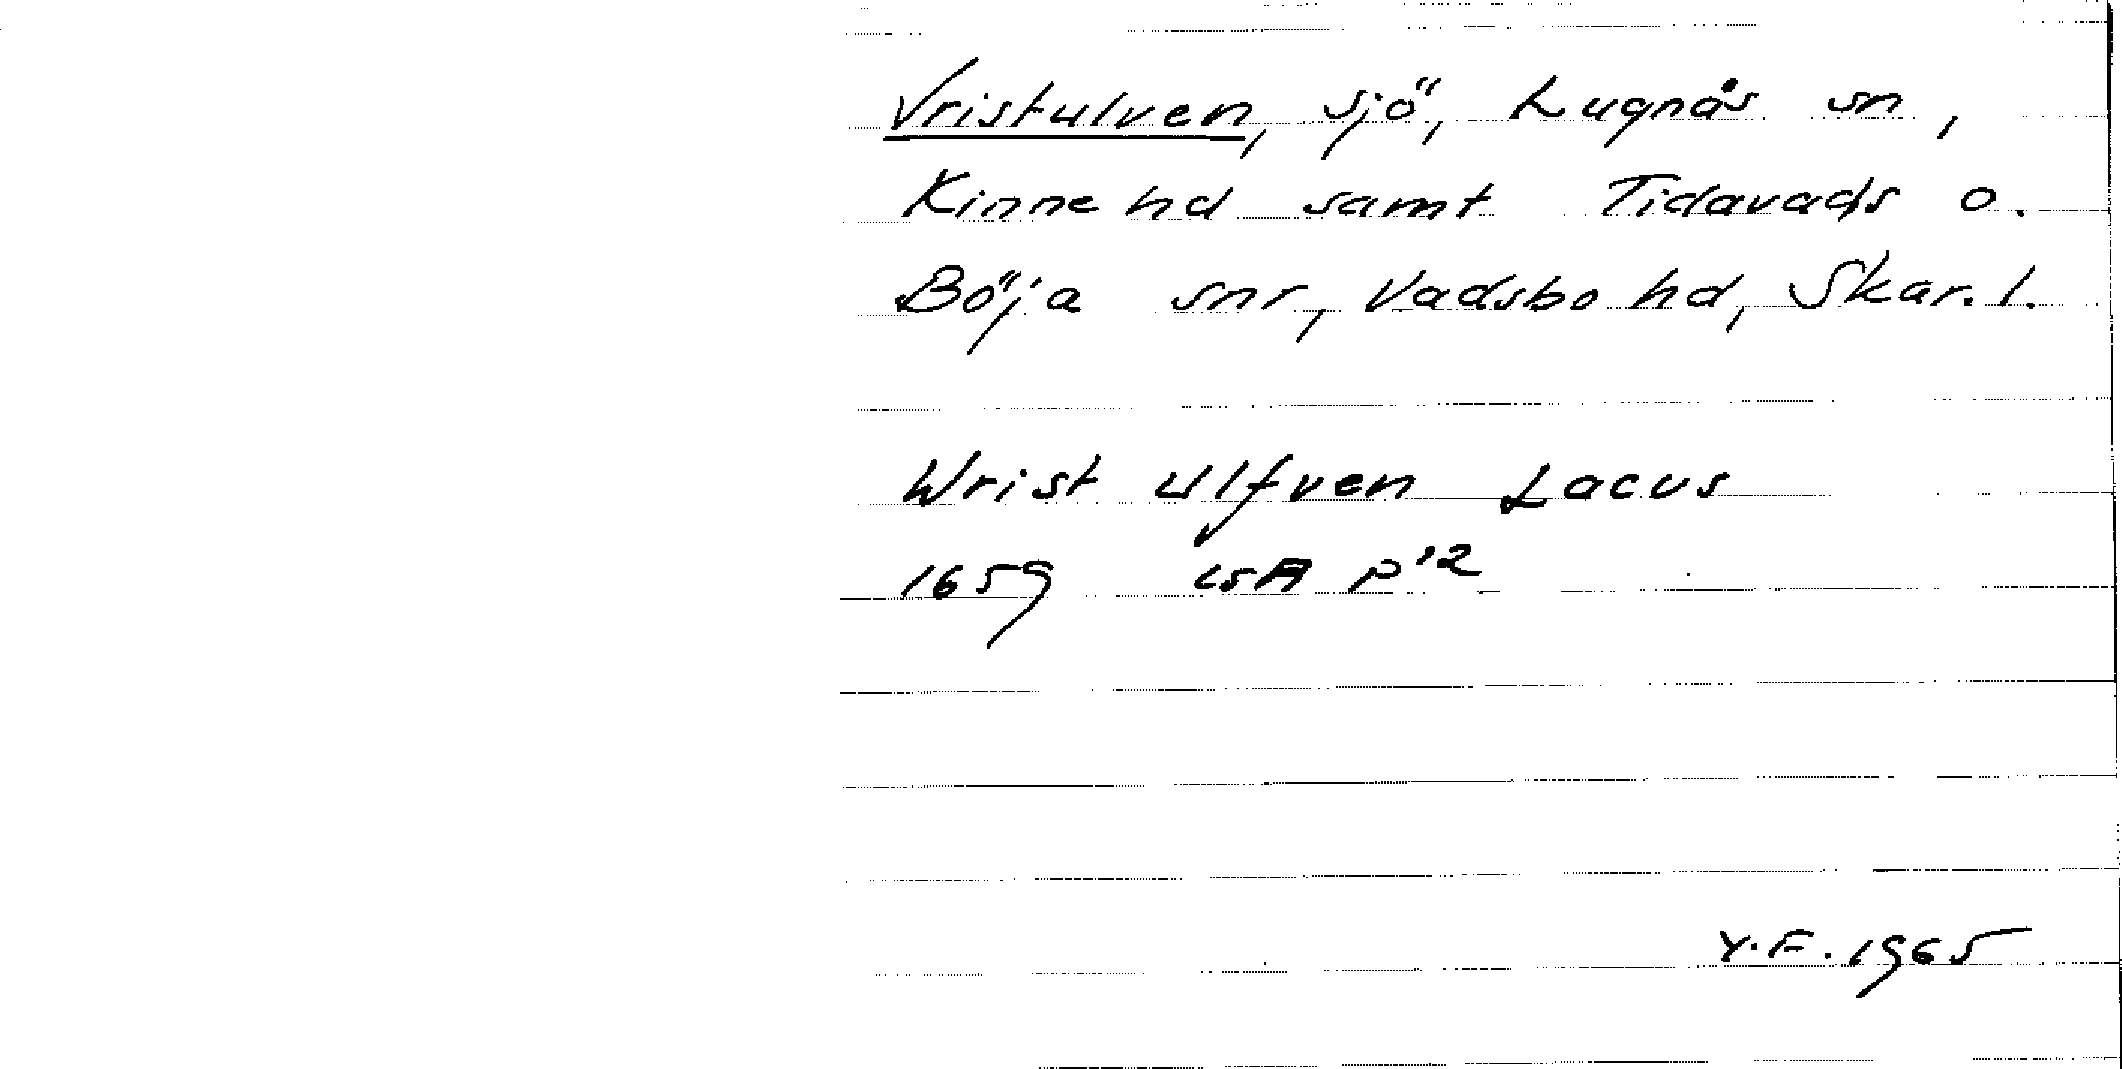 Vristulven, sjö, Lugnås sn,
Kinne hd samt Tidavads o.
Böja snr, Vadsbo hd, Skar. l.
Wrist ulfven Lacus
1659 LSA P 12
Y.F. 1965